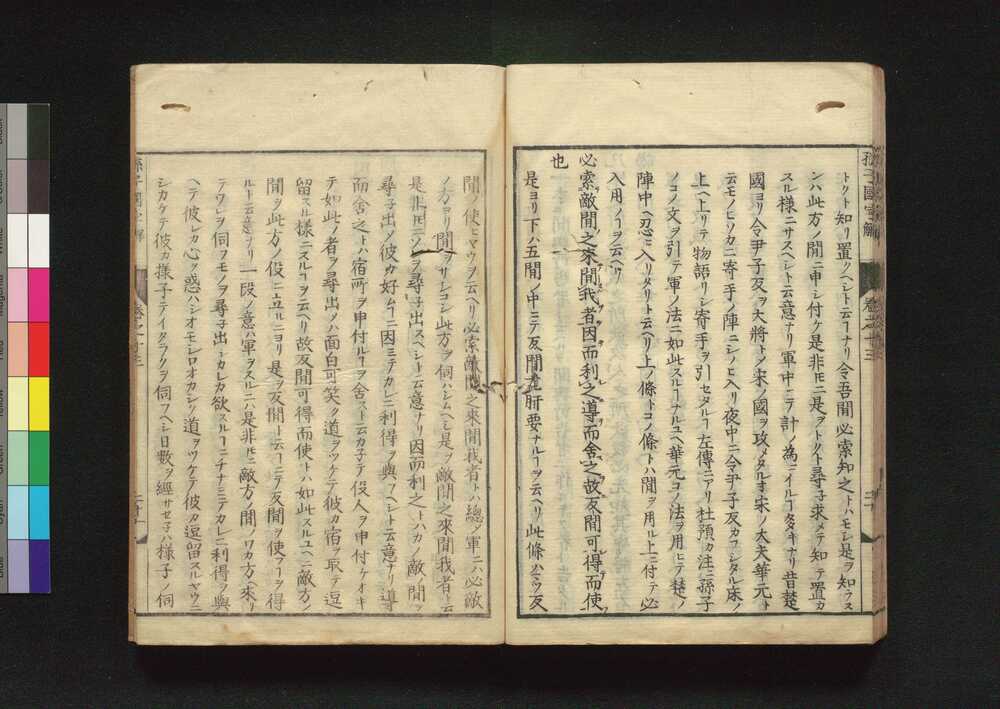 孫子國字解
卷之十三
トクト知リ置クヘシト云ヿナリ令吾間必索知之トハモシ是ヲ知ラス
ンハ此方ノ間ニ申シ付ケ是非𪜈ニ是ヲトクト尋子求メテ知テ置カ
スル様ニサスヘシト云意ナリ軍中ニテ計ノ為ニイルヿ多キナリ昔楚
國ヨリ令尹子反ヲ大将トノ宋ノ國ヲ攻メタルキ宋ノ大夫華元ト
云モノヒソカニ寄手ノ陣ニシノヒ入リ夜中ニ令尹子反カフシタル床ノ
上ヘ上リテ物語リシ寄手ヲ引セタルヿ左傳ニアリ杜預カ注ニ孫子
ノコノ文ヲ引テ軍ノ法ニ如此スルヿナルユヘ華元コノ法ヲ用ヒテ楚ノ
陣中ヘ忍ヒ入リタリト云ヘリ上ノ條トコノ條トハ間ヲ用ル上ニ付テ必
入用ノヿヲ云ヘリ
必索敵間之來間我者因而利之導而舍之故反間可得而使
也
是ヨリ下ハ五間ノ中ニテ反間尤肝要ナルヿヲ云ヘリ此條ハマツ反
間ノ使ヒヤウヲ云ヘリ必索敵間之來間我者トハ總ノ軍ニハ必敵
ノ方ヨリ間ヲ入レコシ此方ヲ伺ハシムヘシ是ヲ敵間之來間我者ト云
是非𪜈ニソレヲ尋子出スヘシト云意ナリ因而利之トハカノ敵ノ間ヲ
尋子出ノ彼カ好ムヿニ因ミテカレニ利得ヲ與フヘシト云意ナリ導
而舍之トハ宿所ヲ申付ルヿヲ舍スト云カ子テ役人ヲ申付ケオキ
テ如此ノ者ヲ尋出ノハ面白可笑ク道ヲツケテ彼カ宿ヲ取テ逗
留スル様ニスルヿヲ云ヘリ故反間可得而使トハ如此スルユヘニ敵方ノ
間ヲ此方ノ役ニ立ルニヨリ是ヲ反間ト云ヿニテ反間ヲ使フヿヲ得
ルト云意ナリ一段ノ意ハ軍ヲスルニハ是非𪜈ニ敵方ノ間ノワカ方ヘ來リ
テワレヲ伺フモノヲ尋子出シカレカ欲スルヿニチナミテカレニ利得ヲ與
ヘテ彼レカ心ヲ惑ハシオモシロオカシク道ヲツケテ彼カ逗留スルヤウニ
シカケテ彼カ様子テイタラクヲ伺フヘシ日數ヲ經サセ子ハ様子ノ伺